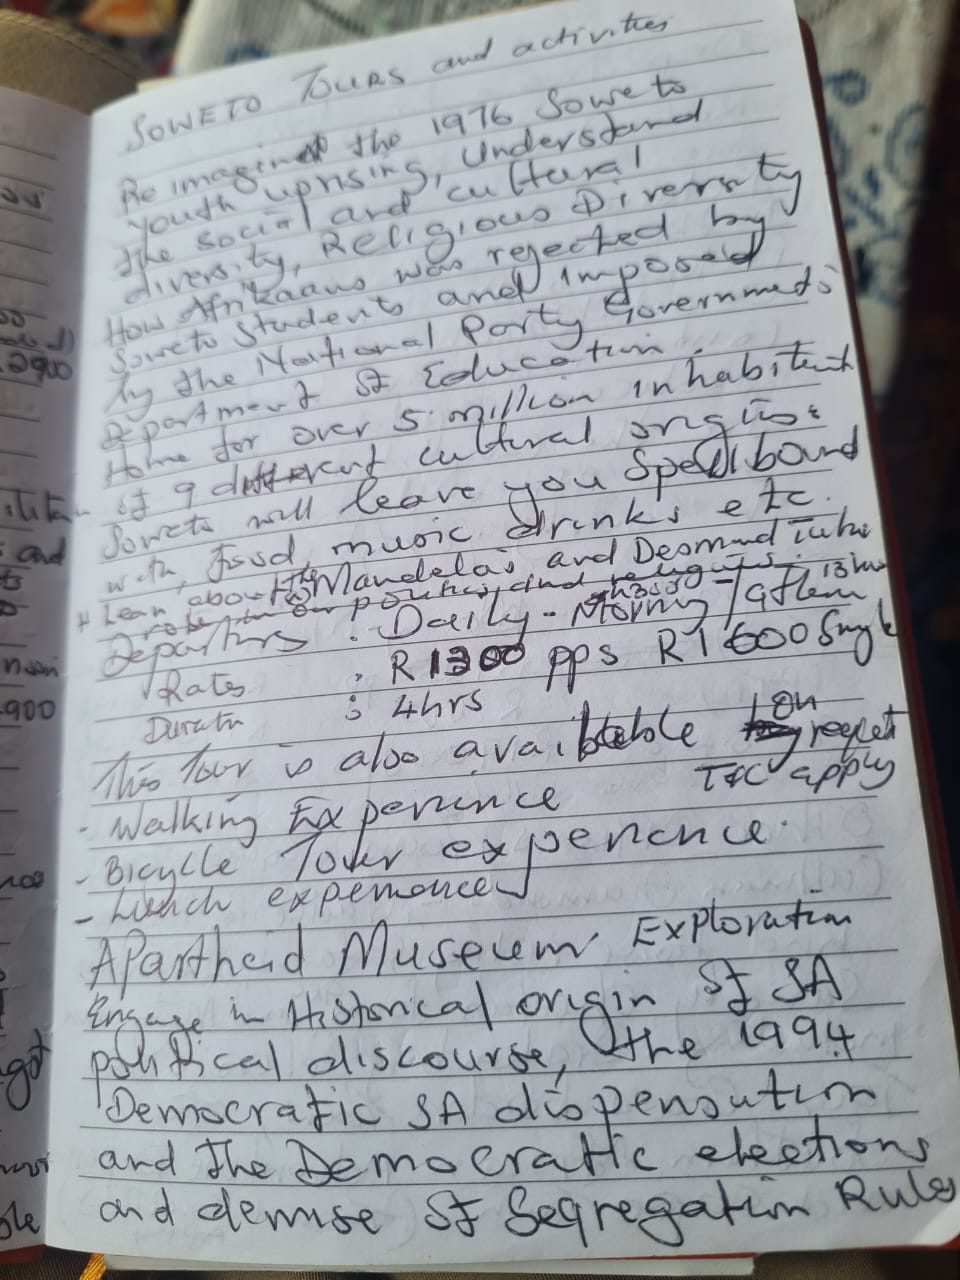 SOWETO TOURS and activities
Re imagined the 1976 Soweto
youth uprising, Understand
the social and cultural
diversity, Religious Diversity
How Afrikaans was rejected by
Soweto Students and imposed
by the National Party Government's
Department of Education.
Home for over 5 million inhabitent
of 9 different cultural origins.
Soweto will leave you Spellbound
with, food, music drinks etc.
# Lean about the Mandela's and Desmond Tutu
role in our politics and religious.
Departurs : Daily - Morny / aften 13hrs
Rates : R1300 pps R1600 Single
Duratn : 4hrs
This Tour is also available On request
T&C apply
- Walking Experience
- Bicyclle Tour experience.
- Lunch experience
Apartheid Museum Exploration
Engage in Historical origin of SA
political discourse, the 1994
Democratic SA dispensation
and the Democratic elections
and demise of Segregation Rules
2900
900
and